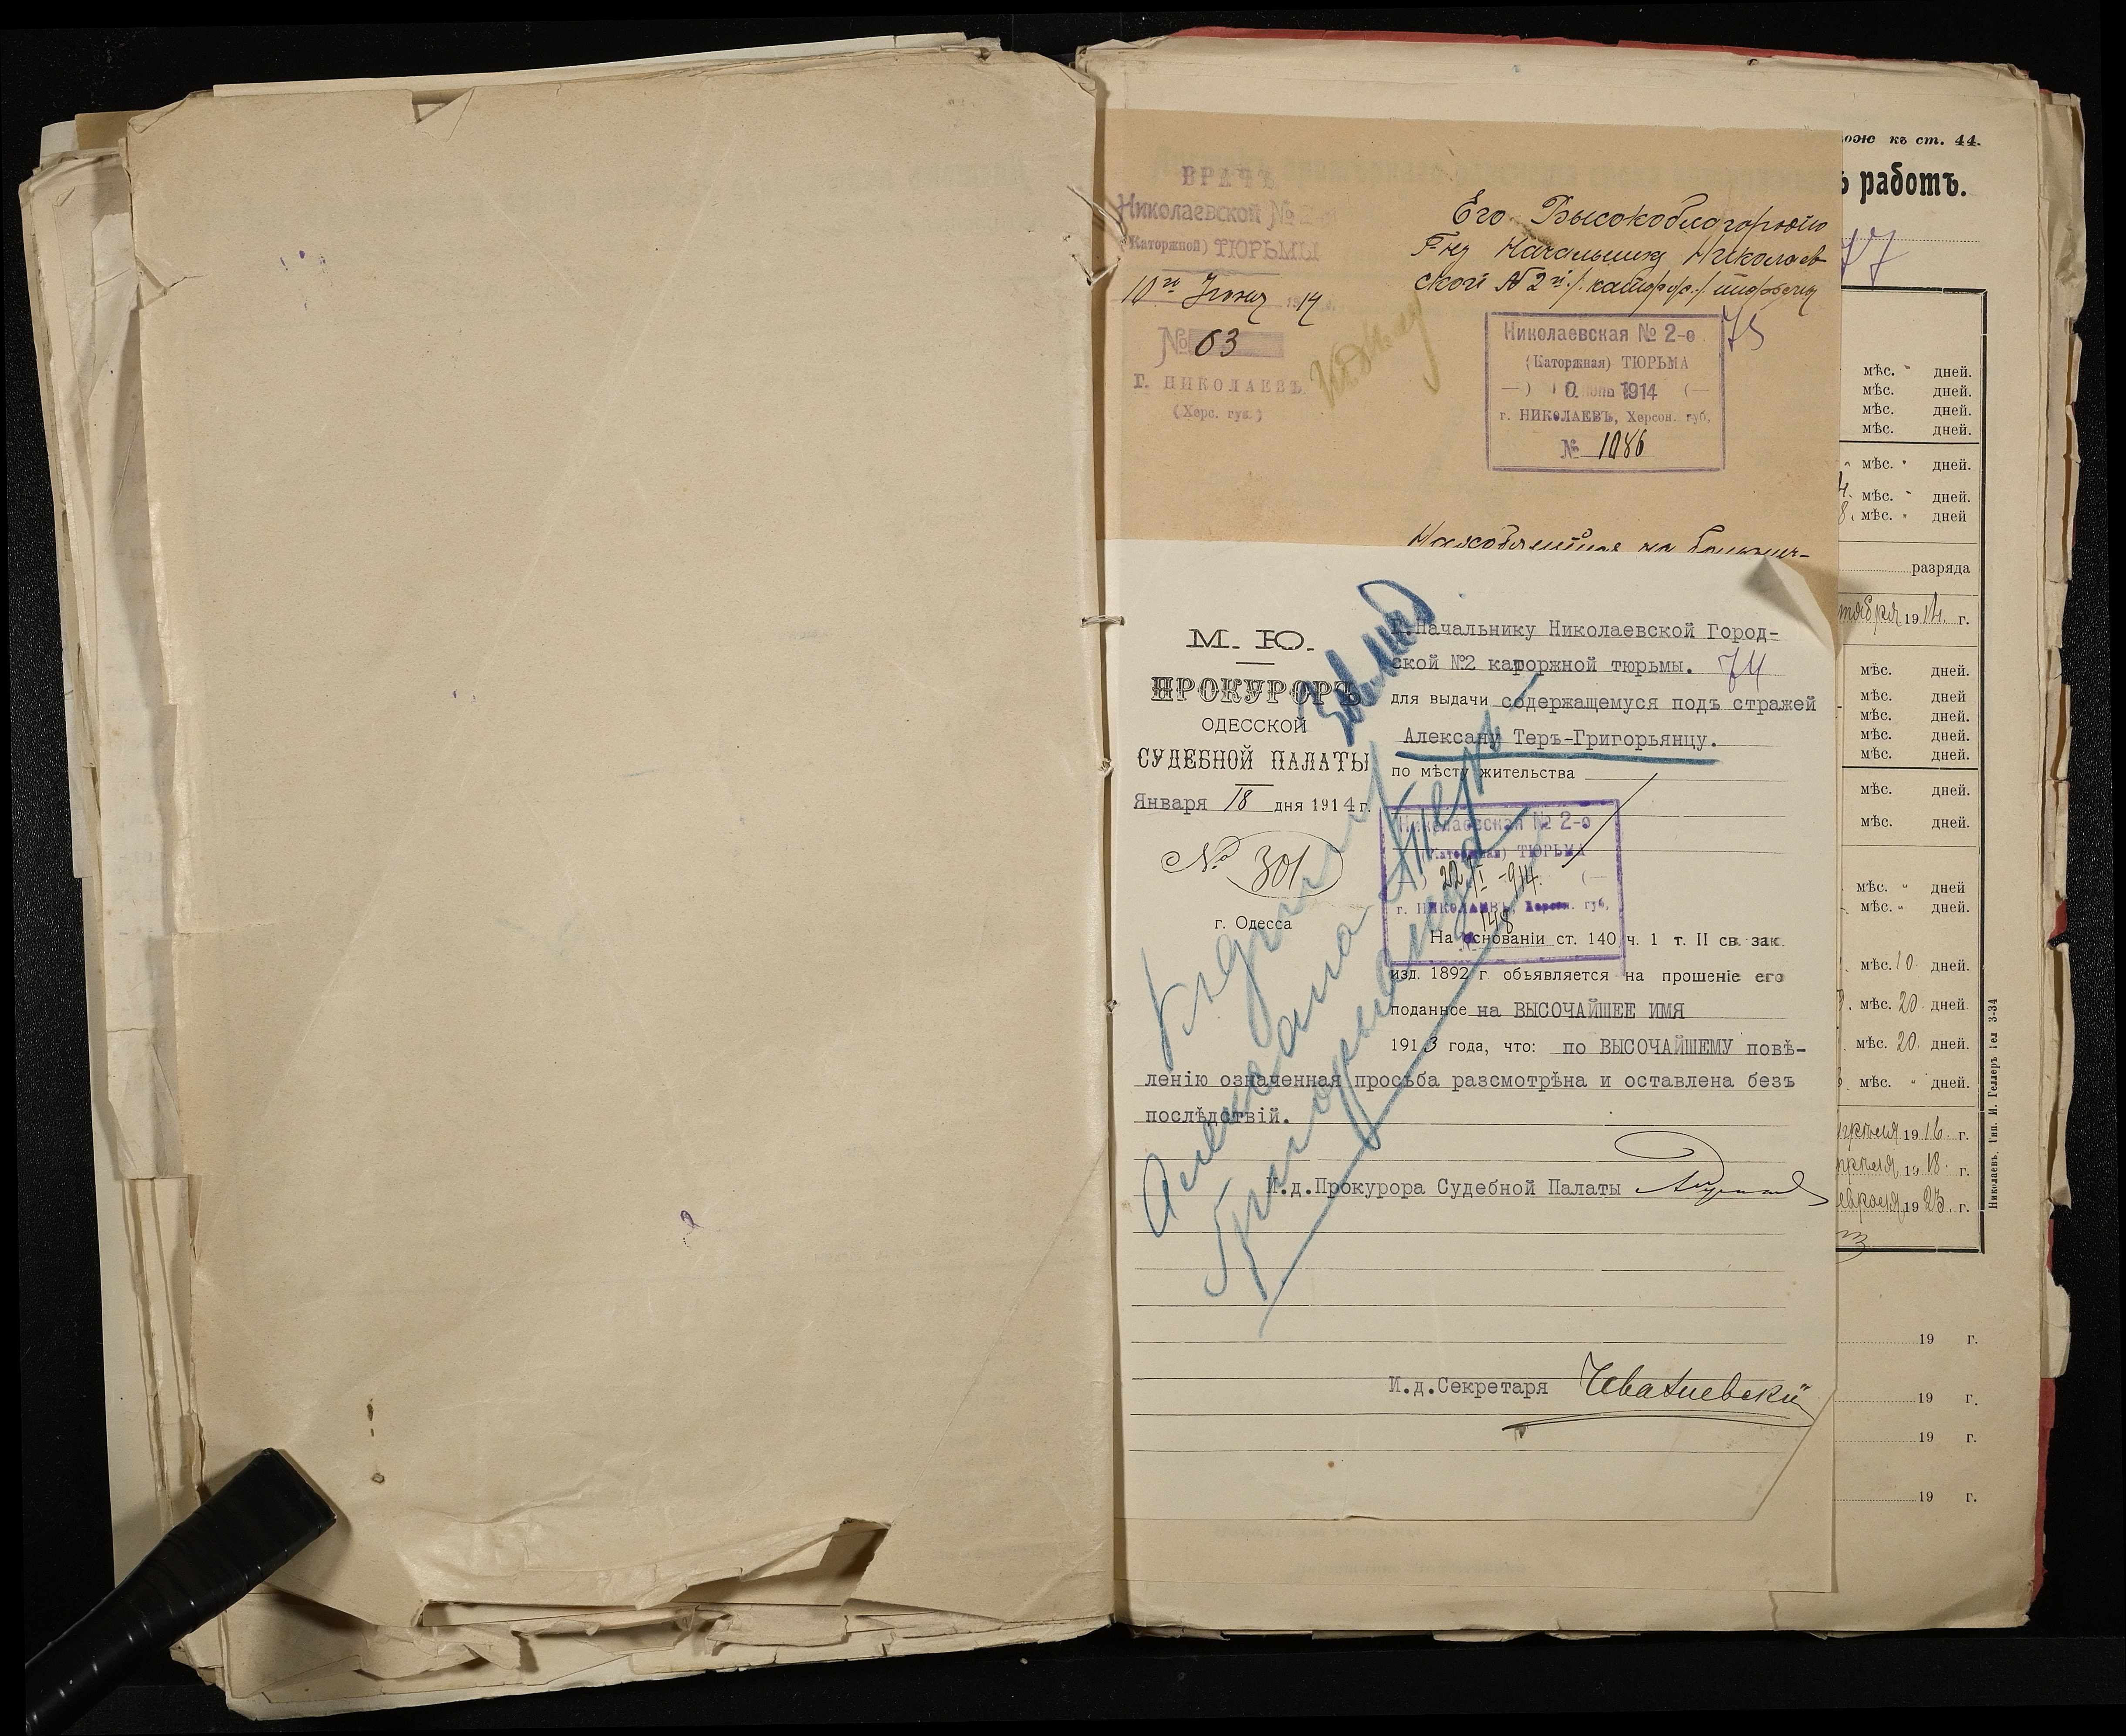 ВРАЧЪ
Николаевской № 2-й
(Каторжной) ТЮРЬМЫ
10го Іюня 1914
№ 63
Г. НИКОЛАЕВЪ
(Херс. губ.)
Его Высокоблагородію
Г-ну Начальнику Николаев
ской № 2й /каторж./ тюрьмы
75
Николаевская № 2-о
(Каторжная) ТЮРЬМА
1914
г. НИКОЛАЕВЪ, Херсон. губ.
№ 1086
М. Ю.
ПРОКУРОРЪ
ОДЕССКОЙ
СУДЕБНОЙ ПАЛАТЫ
Января 18 дня 1914 г.
№ 301
г. Одесса
Г.Начальнику Николаевской Город-
ской №2 каторжной тюрьмы. 74
для выдачи содержащемуся подъ стражей
Алексану Теръ-Григорьянцу.
по мѣсту жительства
Николаевская № 2-о
(Каторжная) ТЮРЬМА
22/I -914.
г. НИКОЛАЕВЪ, Херсон. губ.
148
На основаніи ст. 140 ч. 1 т. II св. зак.
изд. 1892 г. объявляется на прошеніе его
поданное на ВЫСОЧАЙШЕЕ ИМЯ
1913 года, что: по ВЫСОЧАЙШЕМУ повѣ-
ленію означенная просьба разсмотрѣна и оставлена безъ
послѣдствій.
И.д.Прокурора Судебной Палаты
И.д.Секретаря
Алексана Теръ-
Григорьянца
къ ст. 44.
работъ.
77
мѣс. дней.
мѣс. дней.
мѣс. дней.
мѣс. дней.
мѣс. дней.
мѣс. дней.
8. мѣс. дней
разряда
1914. г.
мѣс. дней.
мѣс. дней
мѣс. дней.
мѣс. дней.
мѣс. дней.
мѣс. дней.
мѣс. дней.
мѣс. дней
мѣс. дней.
мѣс. 10 дней.
мѣс. 20 дней.
мѣс. 20. дней.
мѣс. дней.
1916. г.
1918. г.
1923. г.
19 г.
19 г.
19 г.
19 г.
Николаевъ, Тип. И. Геллеръ Тел 3-34